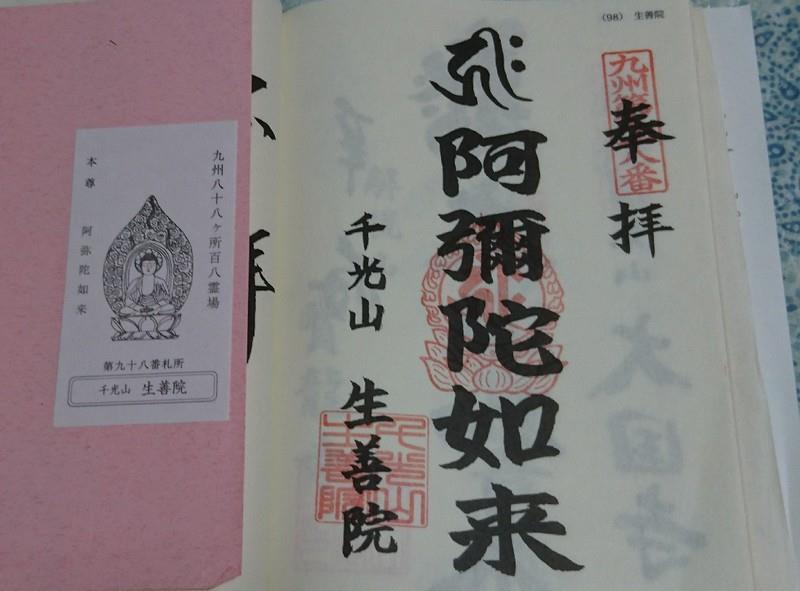 (98) 生善院
九州第九十八番
奉拝
阿彌陀如来
千光山 生善院
千光山生善院
九州八十八ヶ所百八霊場
本尊 阿弥陀如来
第九十八番札所
千光山 生善院